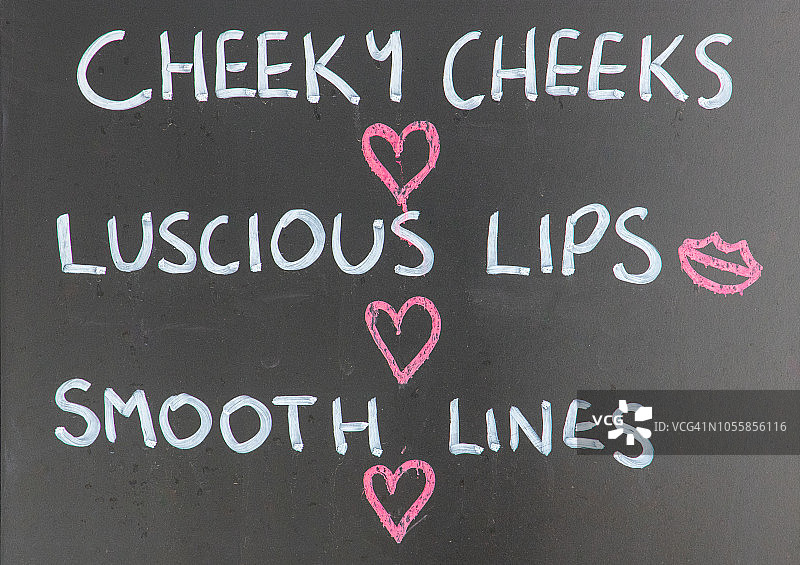 CHEEKY CHEEKS
LUSCIOUS LIPS
SMOOTH LINES
VCG
ID: VCG41N1055856116